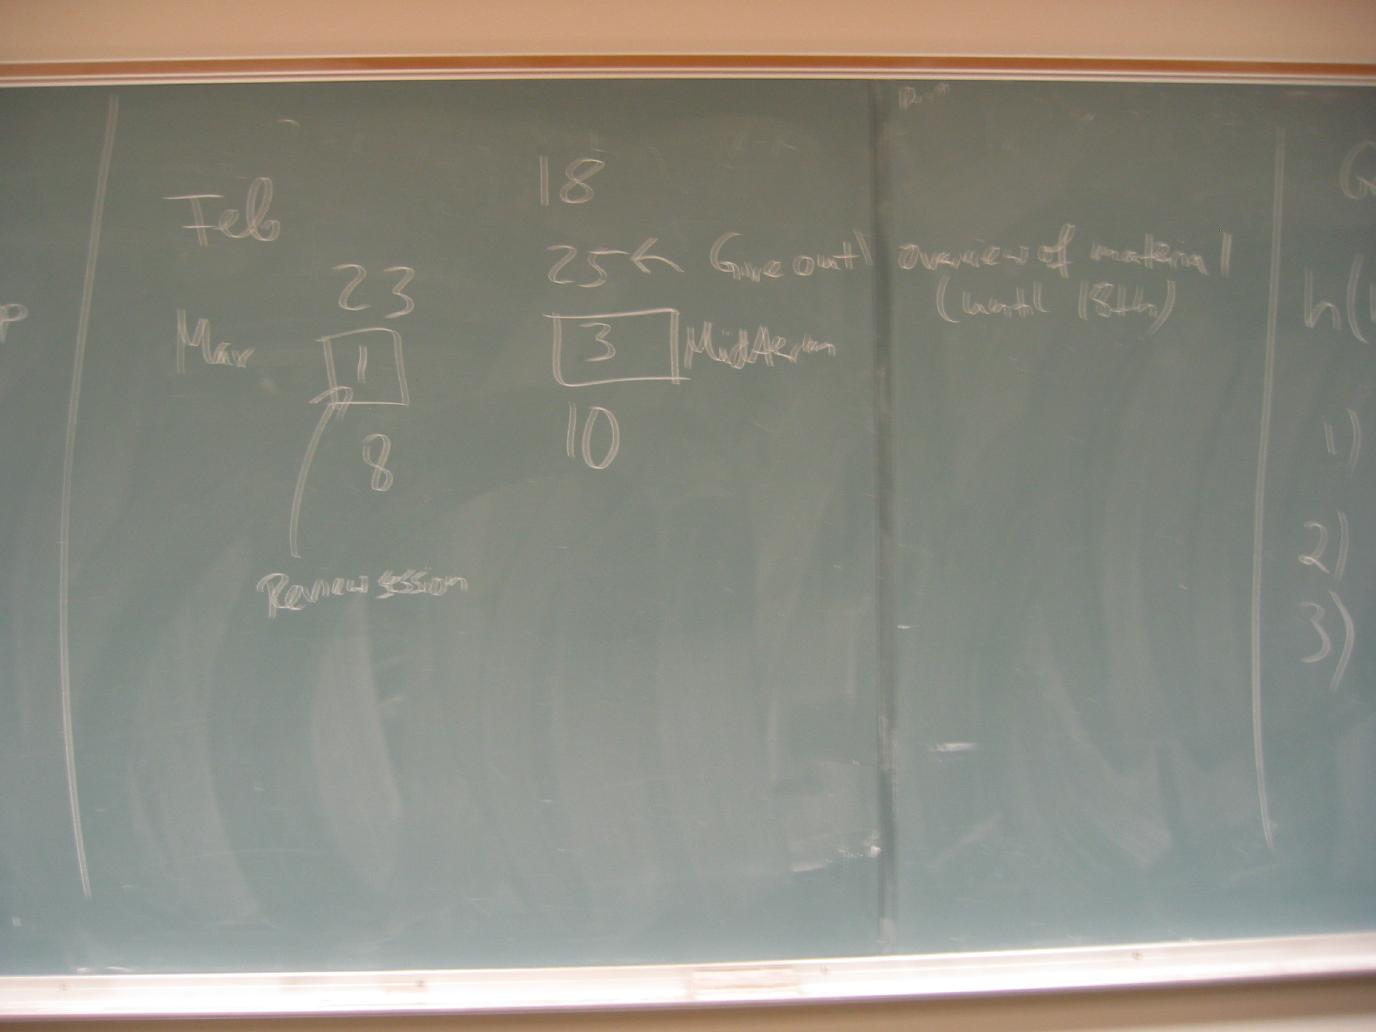 18
Feb
25 ← Give out overview of material
23
(until 18th)
Mar 1 3 Midterm
8 10
Review session
h(
1)
2)
3)